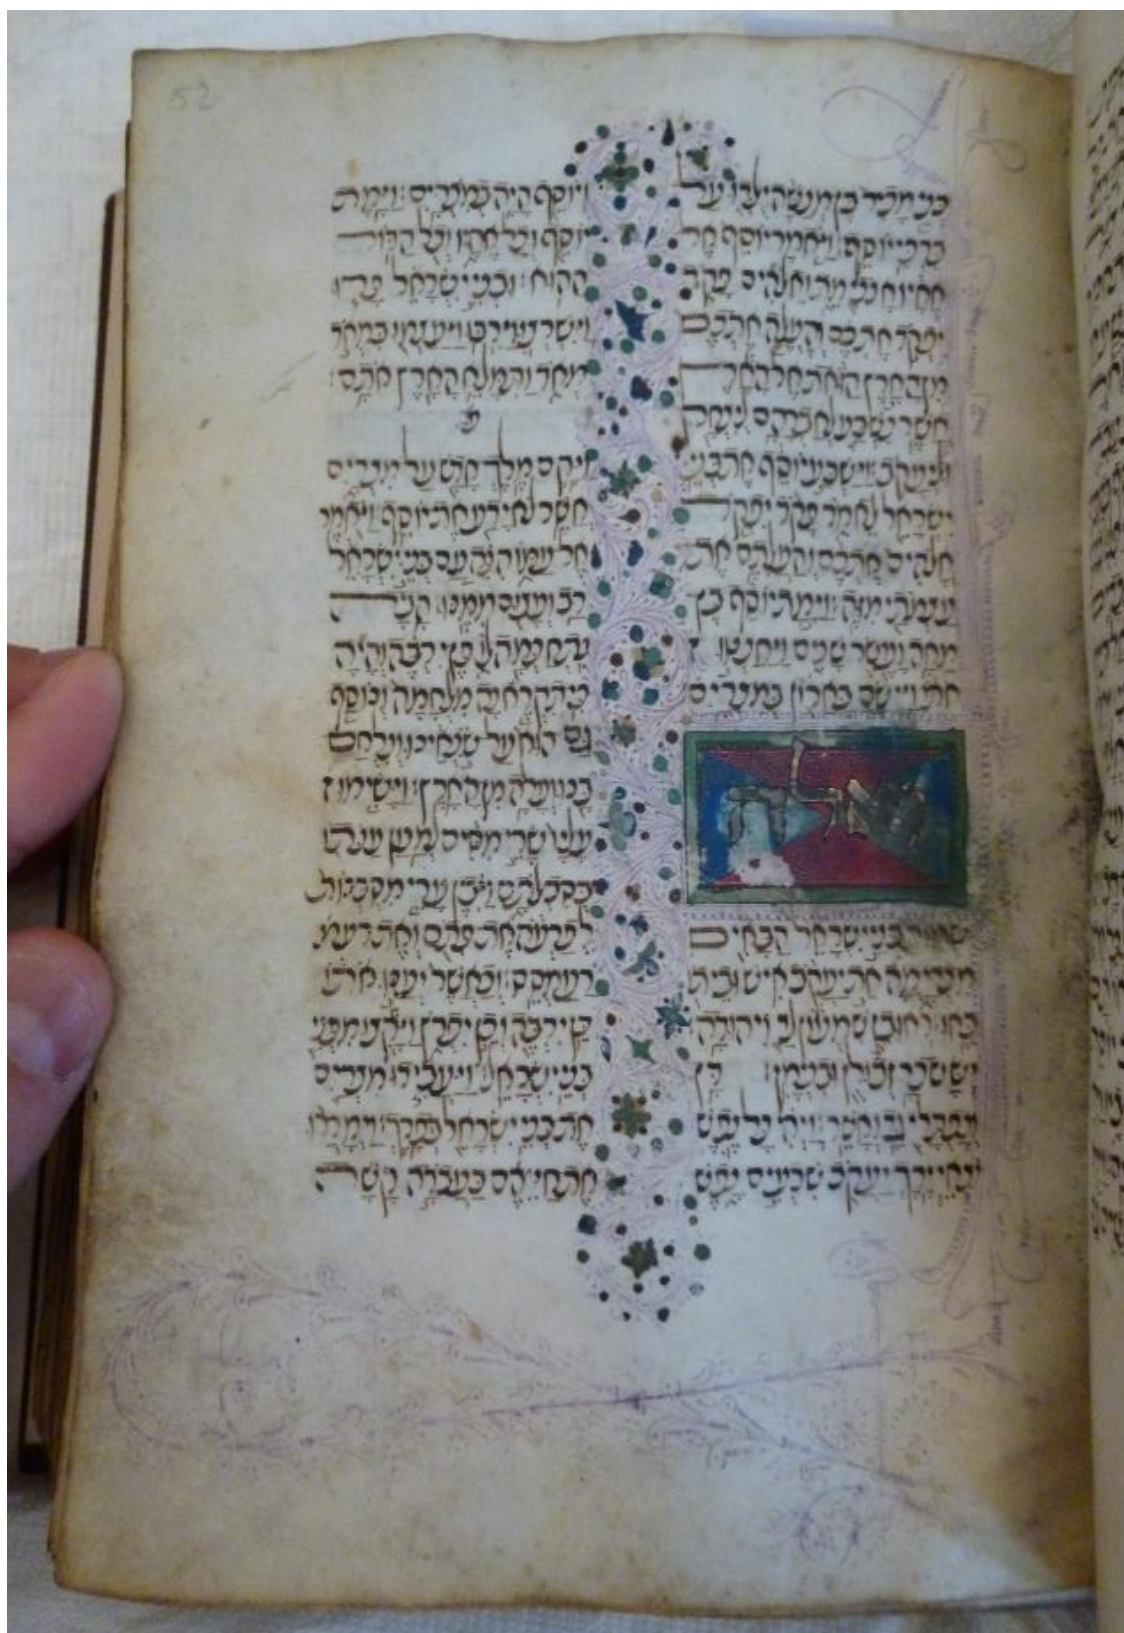 52
בני מכיר בן מנשה ילדו על
ברכי יוסף׃ ויאמר יוסף אל
אחיו אנכי מת ואלהים פקד
יפקד אתכם והעלה אתכם
מן הארץ הזאת אל הארץ
אשר נשבע לאברהם ליצחק
וליעקב׃ וישבע יוסף את בני
ישראל לאמר פקד יפקד
אלהים אתכם והעלתם את
עצמתי מזה׃ וימת יוסף בן
מאה ועשר שנים ויחנטו
אתו ויישם בארון במצרים
ואלה
שמות בני ישראל הבאים
מצרימה את יעקב איש וביתו
באו׃ ראובן שמעון לוי ויהודה׃
יששכר זבולן ובנימן׃ דן
ונפתלי גד ואשר׃ ויהי כל נפש
יצאי ירך יעקב שבעים נפש
ויוסף היה במצרים׃ וימת
יוסף וכל אחיו וכל הדור
ההוא׃ ובני ישראל פרו
וישרצו וירבו ויעצמו במאד
מאד ותמלא הארץ אתם׃
פ
ויקם מלך חדש על מצרים
אשר לא ידע את יוסף׃ ויאמר
אל עמו הנה עם בני ישראל
רב ועצום ממנו׃ הבה
נתחכמה לו פן ירבה והיה
כי תקראנה מלחמה ונוסף
גם הוא על שנאינו ונלחם
בנו ועלה מן הארץ׃ וישימו
עליו שרי מסים למען ענתו
בסבלתם ויבן ערי מסכנות
לפרעה את פתם ואת רעמ
רעמסס׃ וכאשר יענו אתו
כן ירבה וכן יפרץ ויקצו מפני
בני ישראל׃ ויעבידו מצרים
את בני ישראל בפרך׃ וימררו
את חייהם בעבדה קשה